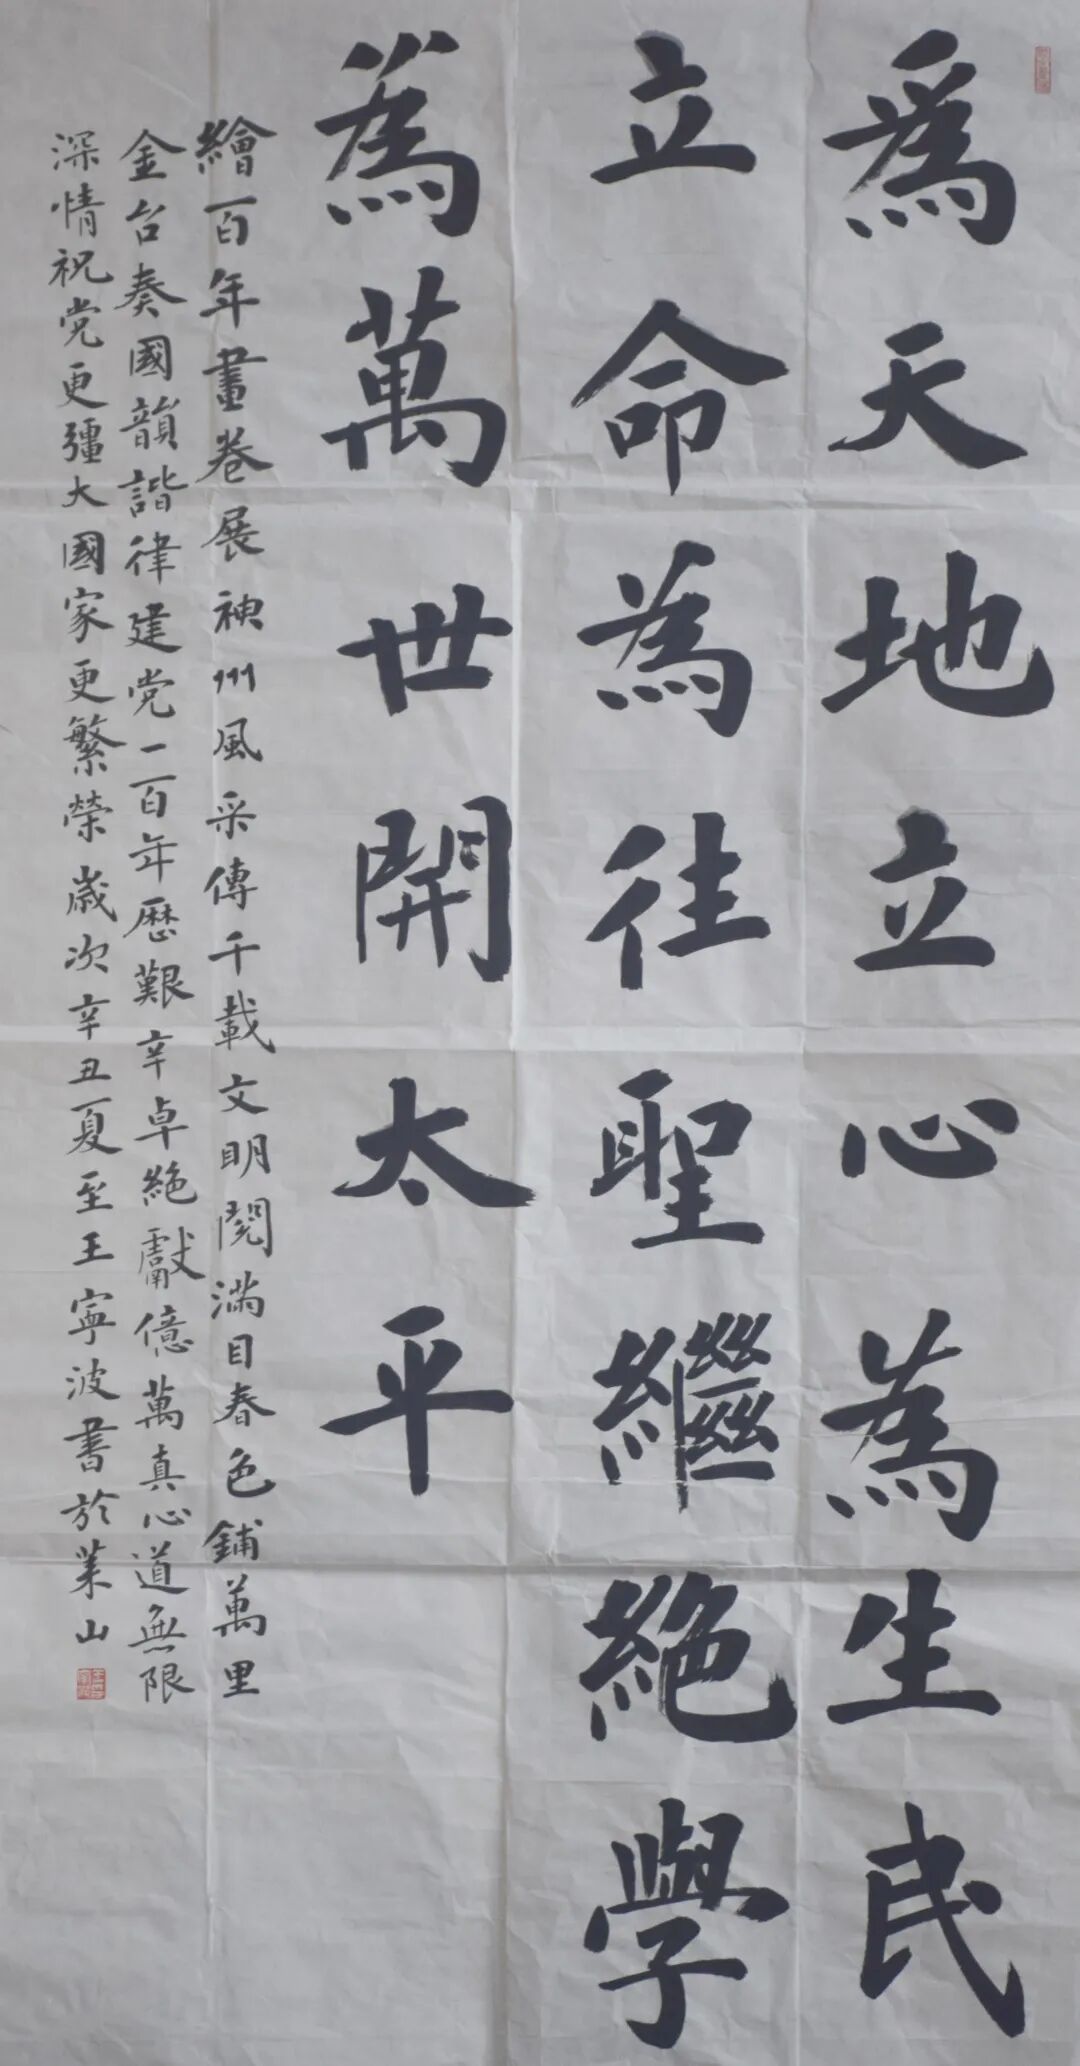 為天地立心為生民
立命為往聖繼絕學
為萬世開太平
繪百年畫卷展神州風采傳千載文明閱滿目春色鋪萬里
金台奏國韻諧律建党一百年歷艱辛卓絕獻億萬真心道無限
深情祝党更彊大國家更繁榮歲次辛丑夏至王寧波書於萊山